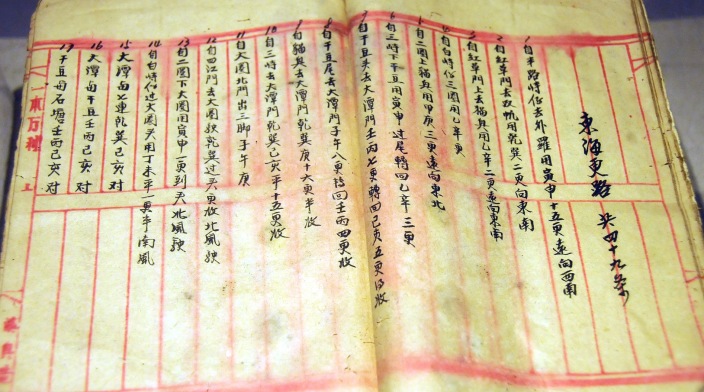 東海更路 共四十九条
1 自半路峙仔去外羅用寅申十五更遠向西南
2 自紅草門上去双帆用乾巽二更向東南
3 自紅草門上去猫興用乙辛二更遠向東南
4 自白峙仔三圈用乙辛更
5 自二圈上猫興用甲庚三更遠向東北
6 自三峙下干豆用寅申 过尾轉回乙辛三更
7 自干豆头去大潭門壬丙七更轉回己亥五更收
8 自干豆尾去大潭門子午八更轉回壬丙四更收
9 自猫興去大潭門乾巽庚十六更半收
10 自三峙去大潭門乾巽己亥平十五更收
11 自大圈北門出三脚子午庚
12 自四江門去大圈 乾巽过 更收北風
13 自二圈下大圈用寅申一更到 北風
14 自白峙仔过大圈 用丁未平一更半南風
15 大潭与七連乾巽己亥对
16 大潭与干豆壬丙己亥对
17 干豆与石塘壬丙己亥对
一本万利